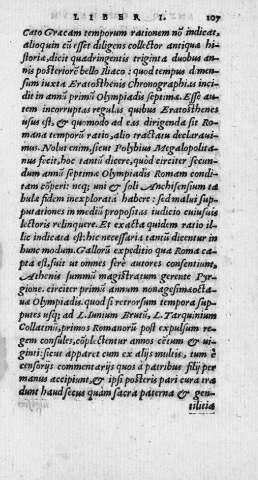 LIBER I. 107
Cato Græcam temporum rationem nō indicat,
alioquin cũ esset diligens collector antiqua hi-
storia, dicit quadringentis triginta duobus an-
nis posteriorē bello Iliaco: quod tempus dimen-
sum iuxta Eratosthenis Chronographias inci-
dit in annū primū Olympiadis septimæ. Esse au-
tem incorruptas regulas quibus Eratosthenes
usus est, & quomodo ad eas dirigenda sit Ro-
mana temporū ratio, alio tractatu declaraui-
mus. Nolui enim, sicut Polybius Megalopolita-
nus fecit, hoc tantũ dicere, quòd circiter secun-
dum annū septimæ Olympiadis Romam condi-
tam cōperi: neq; uni & soli Anchisensium ta-
bulæ fidem inexplorata habere: sed malui sup-
putationes in mediũ propositas iudicio cuiusuis
lectoris relinquere. Et exacta quidem ratio il-
lic indicata est: hic necessaria tantũ dicentur in
hunc modum. Gallorũ expeditio qua Roma ca-
pta est, fuit ut omnes ferè autores consentiunt,
Athenis summũ magistratum gerente Pyr-
gione, circiter primũ annum nonagesimæocta-
ua Olympiadis. quod si retrorsum tempora sup-
putes usq; ad L. Iunium Brutũ, L. Tarquinium
Collatinũ, primos Romanorũ post expulsum re-
gem consules, cōplectentur annos cētum & ui-
ginti: sicut apparet cum ex alijs multis, tum è
censorijs commentarijs quos à patribus filij per
manus accipiunt, & ipsi posteris pari cura tra
dunt haud secus quàm sacra paterna & gen-
tilitia